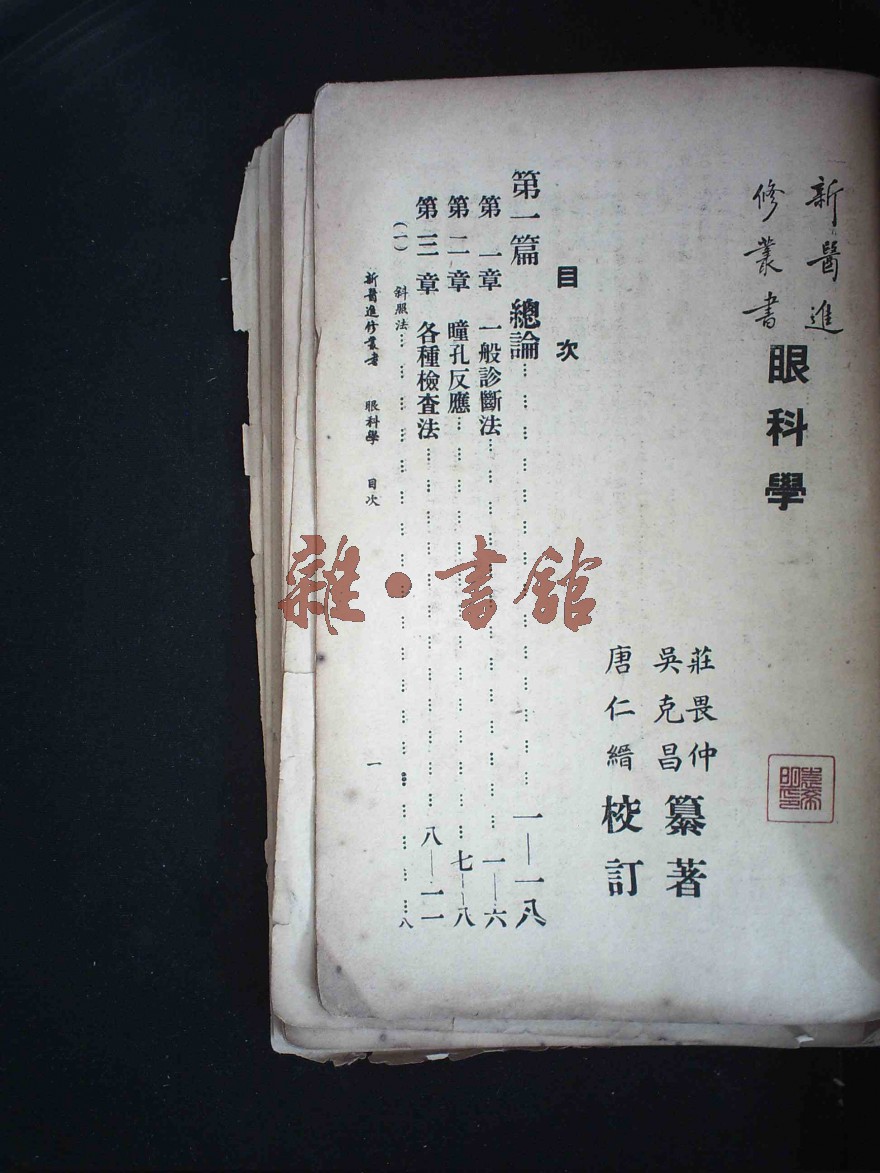 新醫進
修叢書
眼科學
莊畏仲
吳克昌
纂著
唐仁縉 校訂
目次
第一篇 總論…………………………一—一八
第一章 一般診斷法…………………………一—六
第二章 瞳孔反應…………………………七—八
第三章 各種檢查法…………………………八—一一
(一) 斜照法…………………………八
新醫進修叢書 眼科學 目次 一
雜·書館